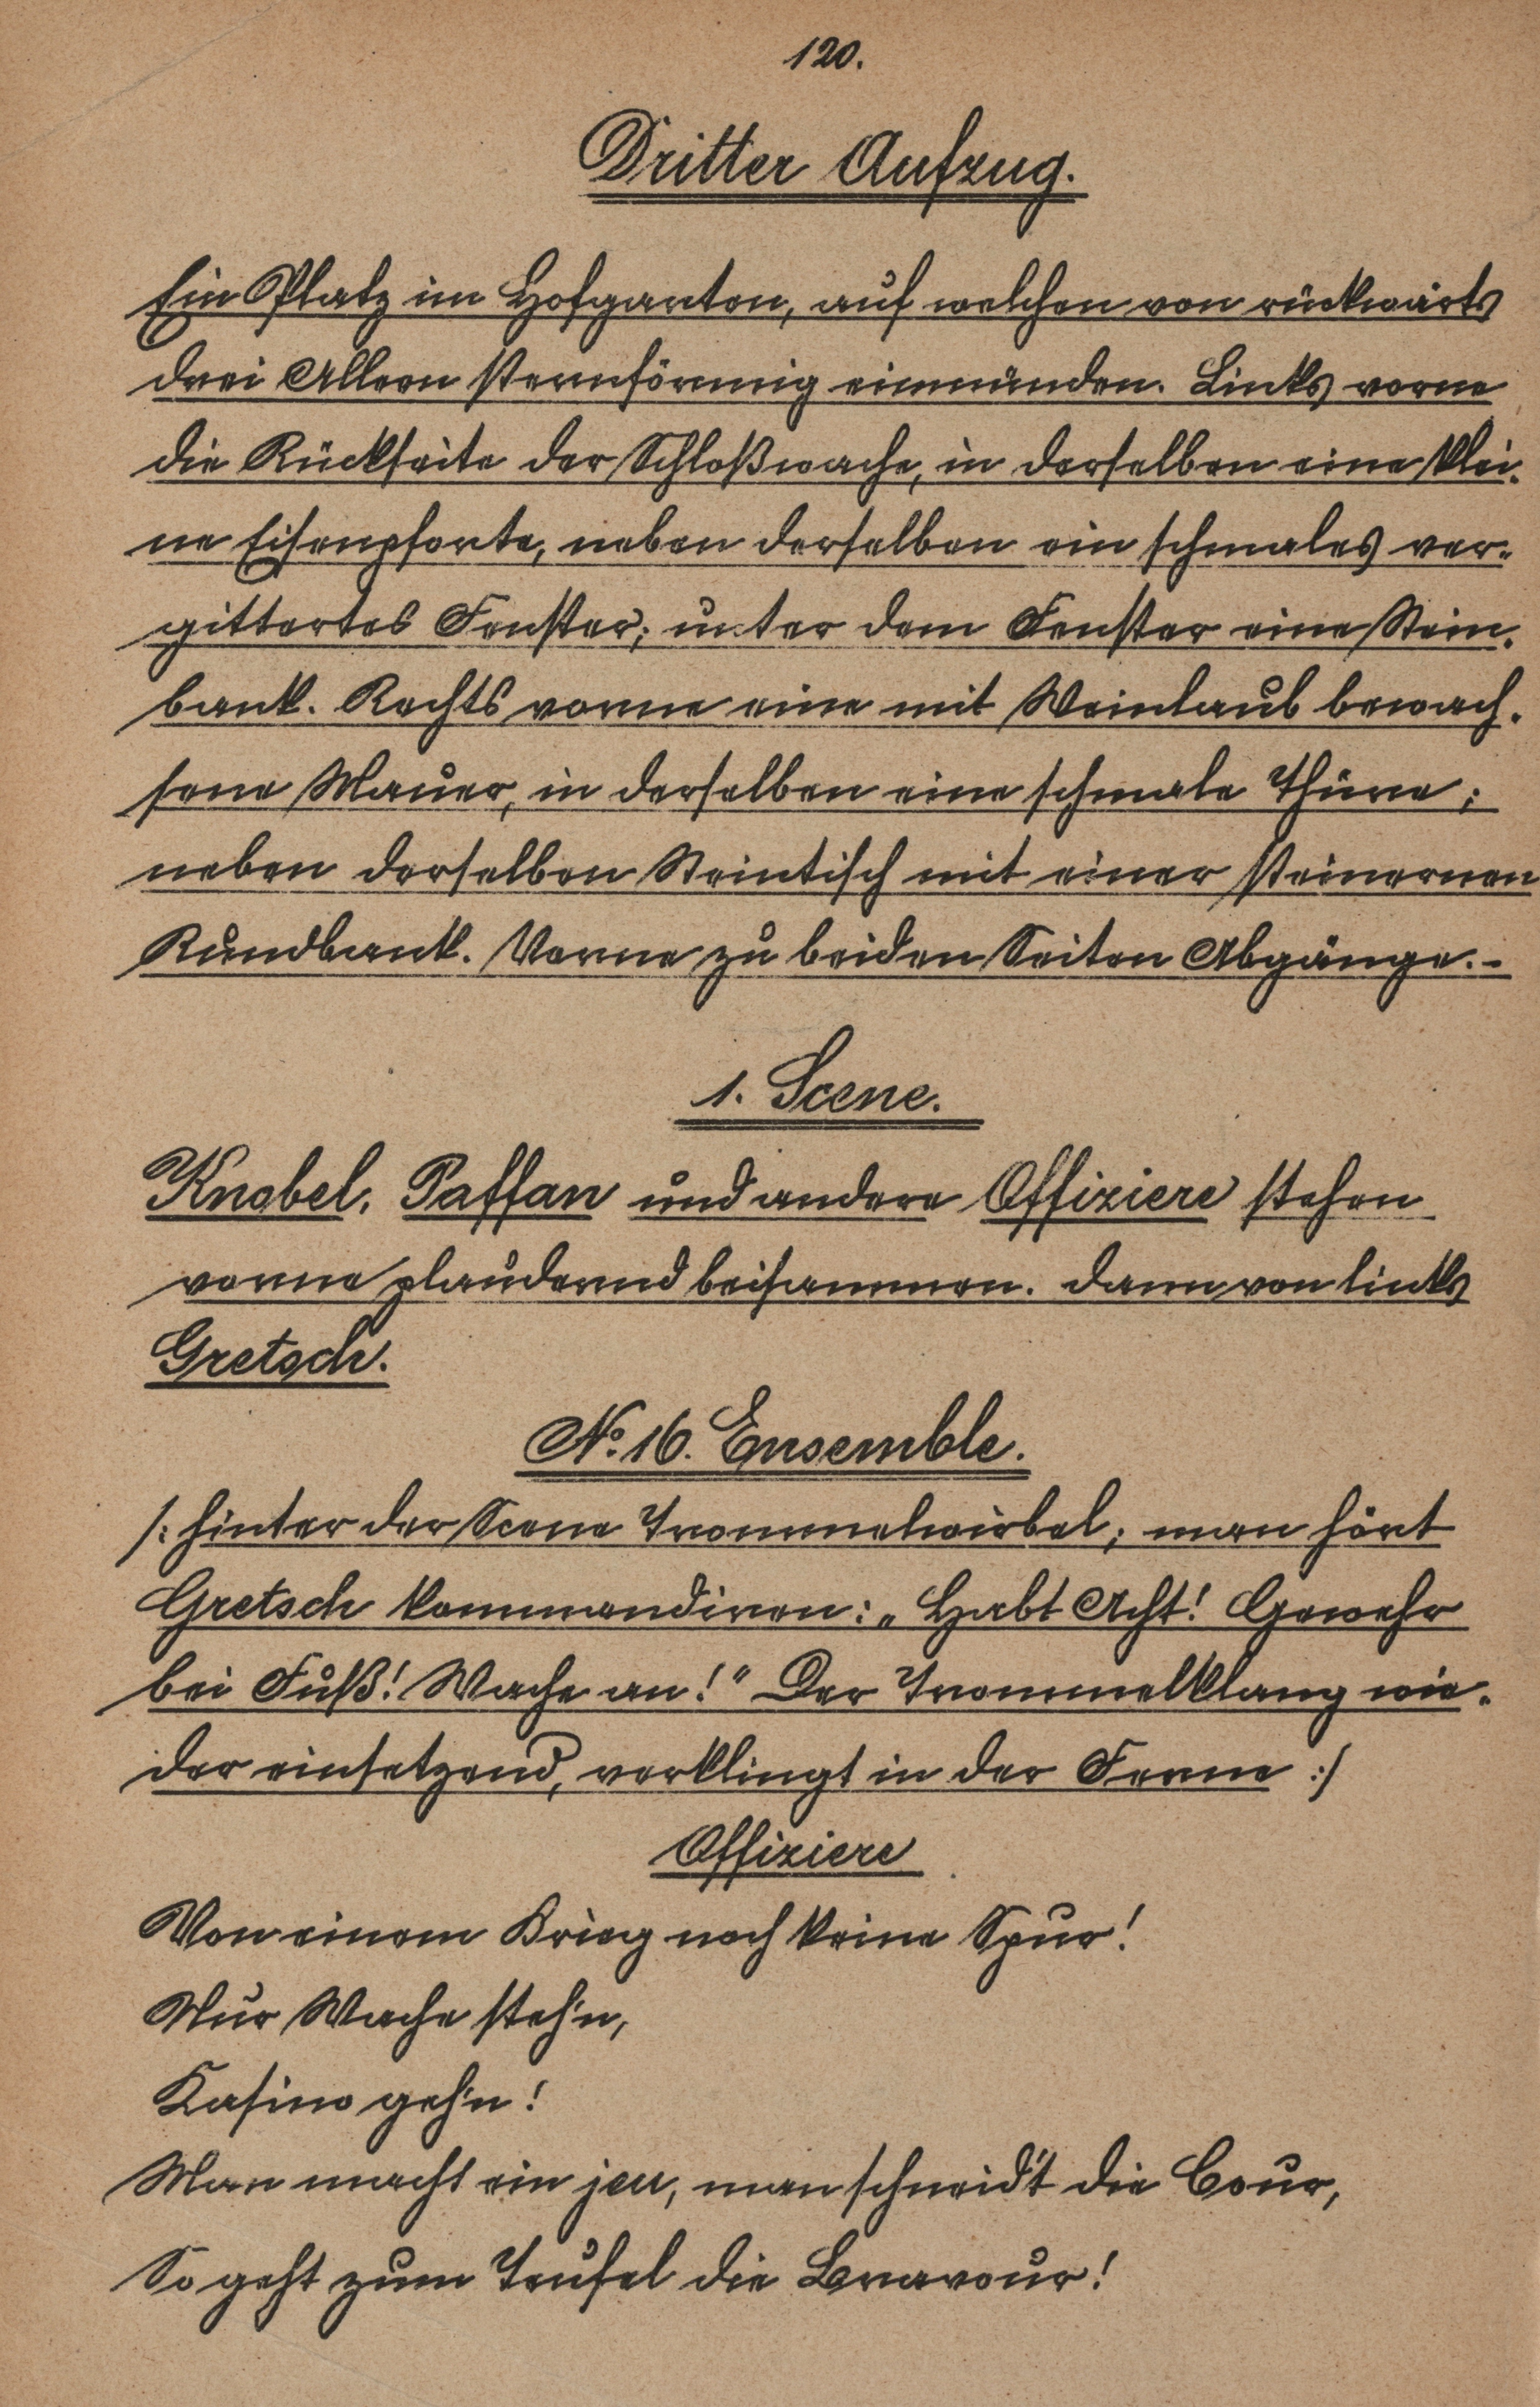 120.
Dritter Aufzug.
Ein Platz im Hofgarten, auf welchen von rückwärts
drei Alleen sternförmig einmünden. Links vorne
die Rückseite der Schloßwache, in derselben eine klei-
ne Eisenpforte, neben derselben ein schmales ver-
gittertes Fenster; unter dem Fenster eine Stein-
bank. Rechts vorne eine mit Weinlaub bewach-
sene Mauer, in derselben eine schmale Thüre;
neben derselben Steintisch mit einer steinernen
Rundbank. Vorne zu beiden Seiten Abgänge.-
1. Scene.
Knobel, Paffan und andere Offiziere stehen
vorne plaudernd beisammen. dann von links
Gretsch.
No. 16. Ensemble.
/: hinter der Scene Trommelwirbel; man hört
Gretsch kommandiren: „Habt Acht! Gewehr
bei Fuß! Wache an!" Der Trommelklang wie-
der einsetzend, verklingt in der Ferne :/
Offiziere
Von einem Krieg noch keine Spur!
Nur Wache steh'n,
Kasino geh'n!
Man macht ein jeu, man schneid't die Cour,
So geht zum Teufel die Bravour!